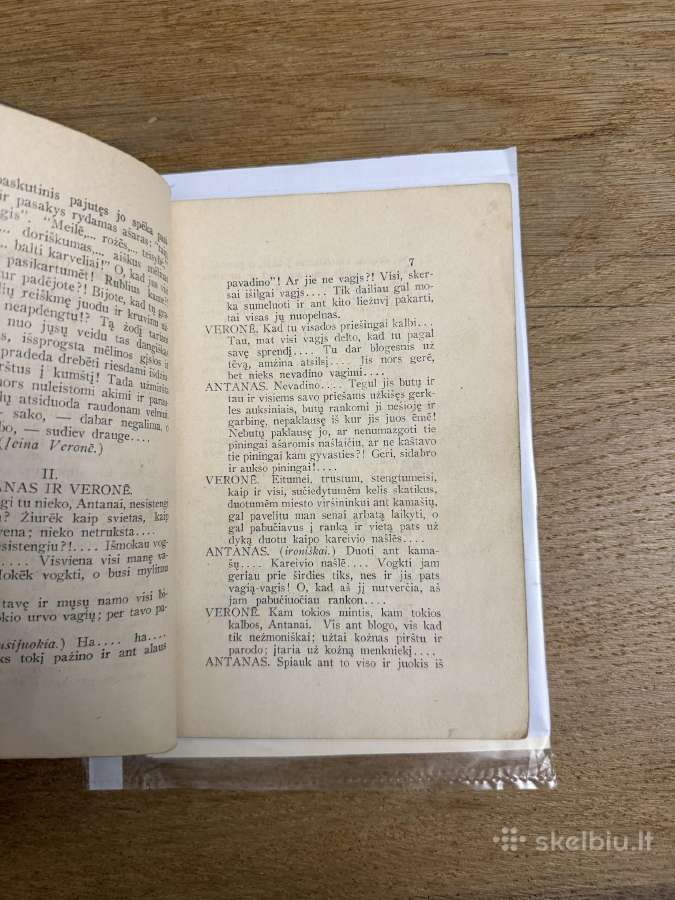 paskutinis pajutęs jo spėka
ir pasakys rydamas ašaras:
"Meilė,... rožės,...
doriškumas,... aiškus mėlinas
balti karveliai"! O, kad jus
pasikartumėt! Rublius
ur padėjote?! Bijote, kad tų
lių reiškmę juodu ir kruvinu
neapdengtu!? Tą žodį tariant
nuo jųsų veidu tas dangiškas
išsprogsta mėlinos gįslos ir
pradeda drebėti riesdami
rštus į kumštį! Tada
nors nuleistomi akimi ir
dų atsiduoda raudonam velniui
sako, — dabar negalima, o
bo, — sudiev drauge....
(Ieina Veronė.)
II.
ANAS IR VERONĖ.
gi tu nieko, Antanai, nesistengi
u? Žiurėk kaip svietas, kaip
vena; nieko netruksta....
esistengiu?!.... Išmokau vog-
Visviena visi manę va-
Mokėk vogkti, o busi mylimu
tavę ir mųsų namo visi bi-
okio urvo vagių; per tavo pa-
usijuokia.) Ha.... ha....
ks tokį pažino ir ant alaus
7
pavadino"! Ar jie ne vagįs?! Visi, sker-
sai išilgai vagįs.... Tik dailiau gal mo-
ka sumeluoti ir ant kito liežuvį pakarti,
tai visas jų nuopelnas.
VERONĖ. Kad tu visados priešingai kalbi...
Tau, mat visi vagįs delto, kad tu pagal
savę sprendį.... Tu dar blogesnis už
tėvą, amžina atsilsį.... Jis nors gerė,
bet nieks nevadino vagimi....
ANTANAS. Nevadino.... Tegul jis butų ir
tau ir visiems savo priešams užkišęs gerk-
les auksiniais, butų rankomi ji nešioję ir
garbinę, nepaklausę iš kur jis juos ėmė!
Nebutų paklausę jo, ar nenumazgoti tie
piningai ašaromis našlaičiu, ar ne kaštavo
tie piningai kam gyvasties?! Geri, sidabro
ir aukso piningai!....
VERONĖ. Eitumei, trustum, stengtumeisi,
kaip ir visi, sučiedytumėm kelis skatikus,
duotumėm miesto viršininkui ant kamašių,
gal pavelitu man senai arbatą laikyti, o
gal pabučiavus į ranką ir vietą pats už
dyką duotu kaipo kareivio našlės....
ANTANAS. (ironiškai.) Duoti ant kama-
šų.... Kareivio našlė.... Vogkti jam
geriau prie širdies tiks, nes ir jis pats
vagią-vagis! O, kad aš jį nutverčia, aš
jam pabučiuočiau rankon....
VERONĖ. Kam tokios mintis, kam tokios
kalbos, Antanai. Vis ant blogo, vis kad
tik nežmoniškai; užtai kožnas pirštu ir
parodo; įtaria už kožną menkniekį....
ANTANAS. Spiauk ant to viso ir juokis iš
skelbiu.lt